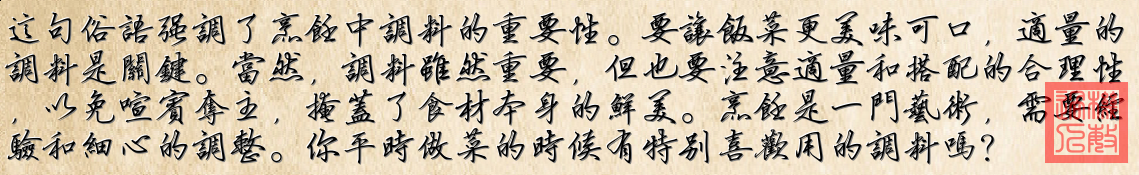 這句俗語强調了烹飪中調料的重要性。要讓飯菜更美味可口，適量的
調料是關鍵。當然，調料雖然重要，但也要注意適量和搭配的合理性
，以免喧賓奪主，掩蓋了食材本身的鮮美。烹飪是一門藝術，需要經
驗和細心的調整。你平時做菜的時候有特别喜歡用的調料嗎？